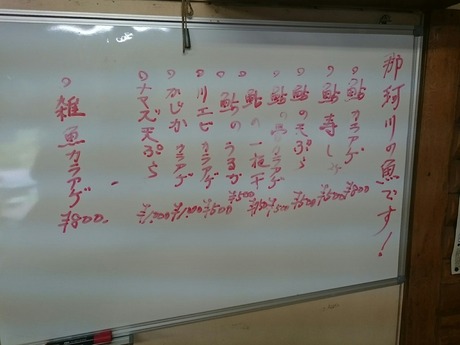 那珂川の魚です!
○鮎カラアゲ ¥800
○鮎寿し ¥500
○鮎の天ぷら ¥500
○鮎の ¥500
○鮎の一夜干 ¥500
○鮎のうるか ¥500
○川エビカラアゲ ¥500
○かじかカラアゲ ¥1,000
○ナマズ天ぷら ¥1,000
○雑魚カラアゲ ¥800.